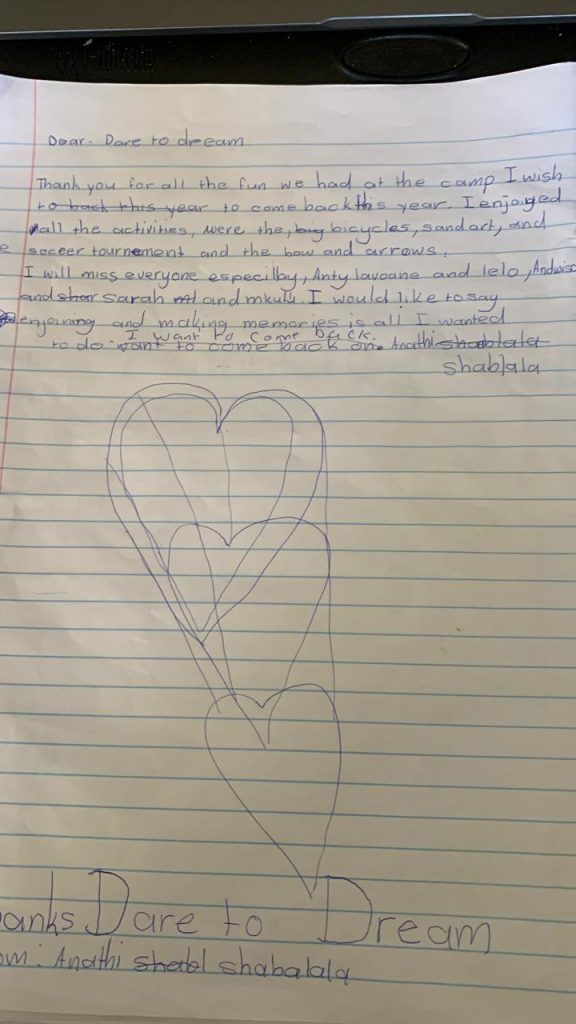 Dear. Dare to dream
Thank you for all the fun we had at the camp I wish
to back this year to come back this year. I enjoyed
all the activities, were the, big bicycles, sand art, and
soceer tournement and the bow and arrows.
I will miss everyone especilby, Anty lavoane and lelo, Andwisa
and shar sarah and mkulu. I would like to say
enjoining and making memories is all I wanted
I want to come back.
to do want to come back on. Anathi shablala
shablala
anks Dare to Dream
om: Anathi shabl shabalala